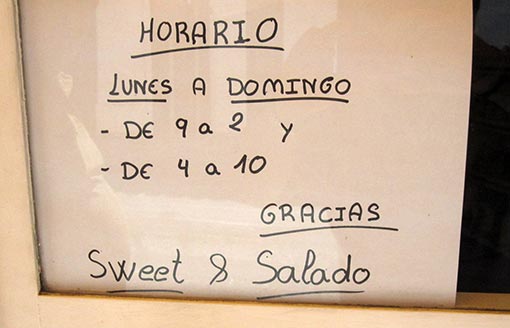 HORARIO
LUNES A DOMINGO
- DE 9 a 2 y
- DE 4 a 10
GRACIAS
Sweet & Salado